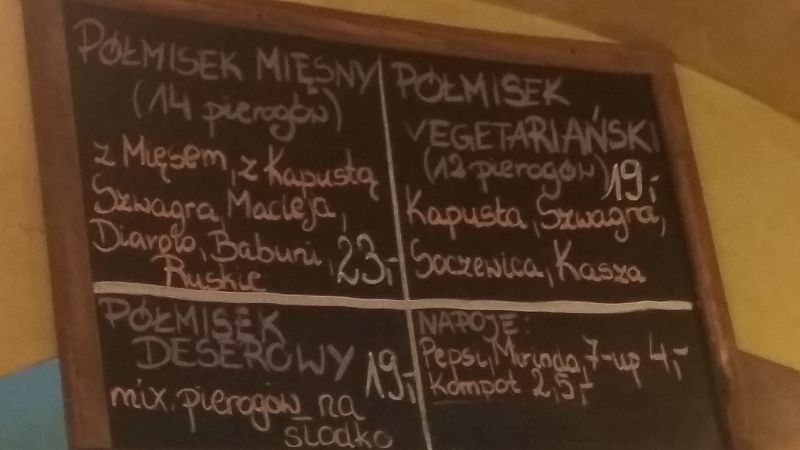 PÓŁMISEK MIĘSNY
(14 pierogów)
z Mięsem, z Kapustą
Szwagra, Macieja,
Diaroło, Babuni, 23,-
Ruskie
PÓŁMISEK
VEGETARIAŃSKI
(12 pierogów) 19,-
Kapusta, Szwagra,
Soczewica, Kasza
PÓŁMISEK
DESEROWY 19,-
mix. pierogów na
słodko
NAPOJE:
Pepsi, Mirinda, 7-up 4,-
Kompot 2,5,-